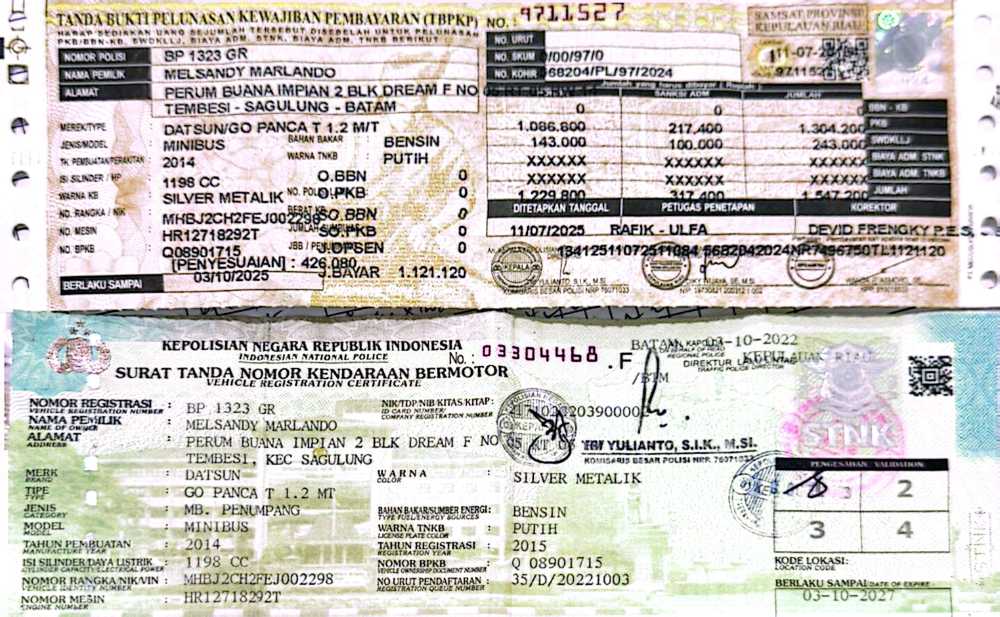 TANDA BUKTI PELUNASAN KEWAJIBAN PEMBAYARAN (TBPKP) NO. 9711527
HARAP SEDIAKAN UANG SEJUMLAH TERSEBUT DISEBELAH UNTUK PELUNASAN
PKB/BBN-KB, SWDKLLJ, BIAYA ADM. STNK, BIAYA ADM. TNKB BERIKUT
SAMSAT PROVINSI
KEPULAUAN RIAU
NOMOR POLISI BP 1323 GR
NAMA PEMILIK MELSANDY MARLANDO
ALAMAT PERUM BUANA IMPIAN 2 BLK DREAM F NO
TEMBESI - SAGULUNG - BATAM
NO. URUT
NO. SKUM /00/97/0
NO. KOHIR 668204/PL/97/2024
Jumlah yang harus dibayar (Rupiah)
SANKSI ADM JUMLAH
0 0 BBN - KB
1.086.800 217.400 1.304.200 PKB
143.000 100.000 243.000 SWDKLLJ
XXXXXX XXXXXX XXXXXX BIAYA ADM. STNK
XXXXXX XXXXXX XXXXXX BIAYA ADM. TNKB
1.229.800 317.400 1.547.200 JUMLAH
MEREK/TYPE DATSUN/GO PANCA T 1.2 M/T
JENIS/MODEL MINIBUS BAHAN BAKAR BENSIN
TH. PEMBUATAN/PERAKITAN 2014 WARNA TNKB PUTIH
ISI SILINDER / HP 1198 CC O.BBN 0
WARNA KB SILVER METALIK O.PKB 0
NO. RANGKA / NIK MHBJ2CH2FEJ002298 SO.BBN 0
NO. MESIN HR12718292T SO.PKB 0
NO. BPKB Q08901715 OPSEN 0
[PENYESUAIAN] : 426.080
BERLAKU SAMPAI 03/10/2025 J.BAYAR 1.121.120
DITETAPKAN TANGGAL PETUGAS PENETAPAN KOREKTOR
11/07/2025 RAFIK - ULFA DEVID FRENGKY P.E.S
KOMISARIS BESAR POLISI NRP 76071033
KEPOLISIAN NEGARA REPUBLIK INDONESIA
INDONESIAN NATIONAL POLICE
No. : 03304468 .F
SURAT TANDA NOMOR KENDARAAN BERMOTOR
VEHICLE REGISTRATION CERTIFICATE
/BTM
KEPULAUAN RIAU
TRAFFIC POLICE DIRECTOR
NOMOR REGISTRASI : BP 1323 GR
VEHICLE REGISTRATION NUMBER
NIK/TDP/NIB/KITAS/KITAP :
ID CARD NUMBER/
COMPANY REGISTRATION NUMBER
NAMA PEMILIK : MELSANDY MARLANDO
NAME OF OWNER
ALAMAT : PERUM BUANA IMPIAN 2 BLK DREAM F NO
ADDRESS
TEMBESI, KEC SAGULUNG
TRI YULIANTO, S.I.K., M.SI.
KOMISARIS BESAR POLISI NRP. 76071033
STNK
MERK : DATSUN
BRAND
WARNA : SILVER METALIK
COLOR
TIPE : GO PANCA T 1.2 MT
TYPE
JENIS : MB. PENUMPANG
CATEGORY
BAHAN BAKAR/SUMBER ENERGI : BENSIN
TYPE FUEL/ENERGY SOURCES
MODEL : MINIBUS
MODEL
WARNA TNKB : PUTIH
LICENSE PLATE COLOR
TAHUN PEMBUATAN : 2014
MANUFACTURE YEAR
TAHUN REGISTRASI : 2015
REGISTRATION YEAR
ISI SILINDER/DAYA LISTRIK : 1198 CC
CYLINDER CAPACITY/ELECTRICAL POWER
NOMOR BPKB : Q 08901715
VEHICLE OWNERSHIP DOCUMENT NUMBER
NOMOR RANGKA/NIK/VIN : MHBJ2CH2FEJ002298
VEHICLE IDENTITY NUMBER
NO URUT PENDAFTARAN : 35/D/20221003
REGISTRATION QUEUE NUMBER
NOMOR MESIN : HR12718292T
ENGINE NUMBER
PENGESAHAN VALIDATION
2
3 4
KODE LOKASI:
LOCATION CODE
BERLAKU SAMPAI/DATE OF EXPIRE :
03-10-2027